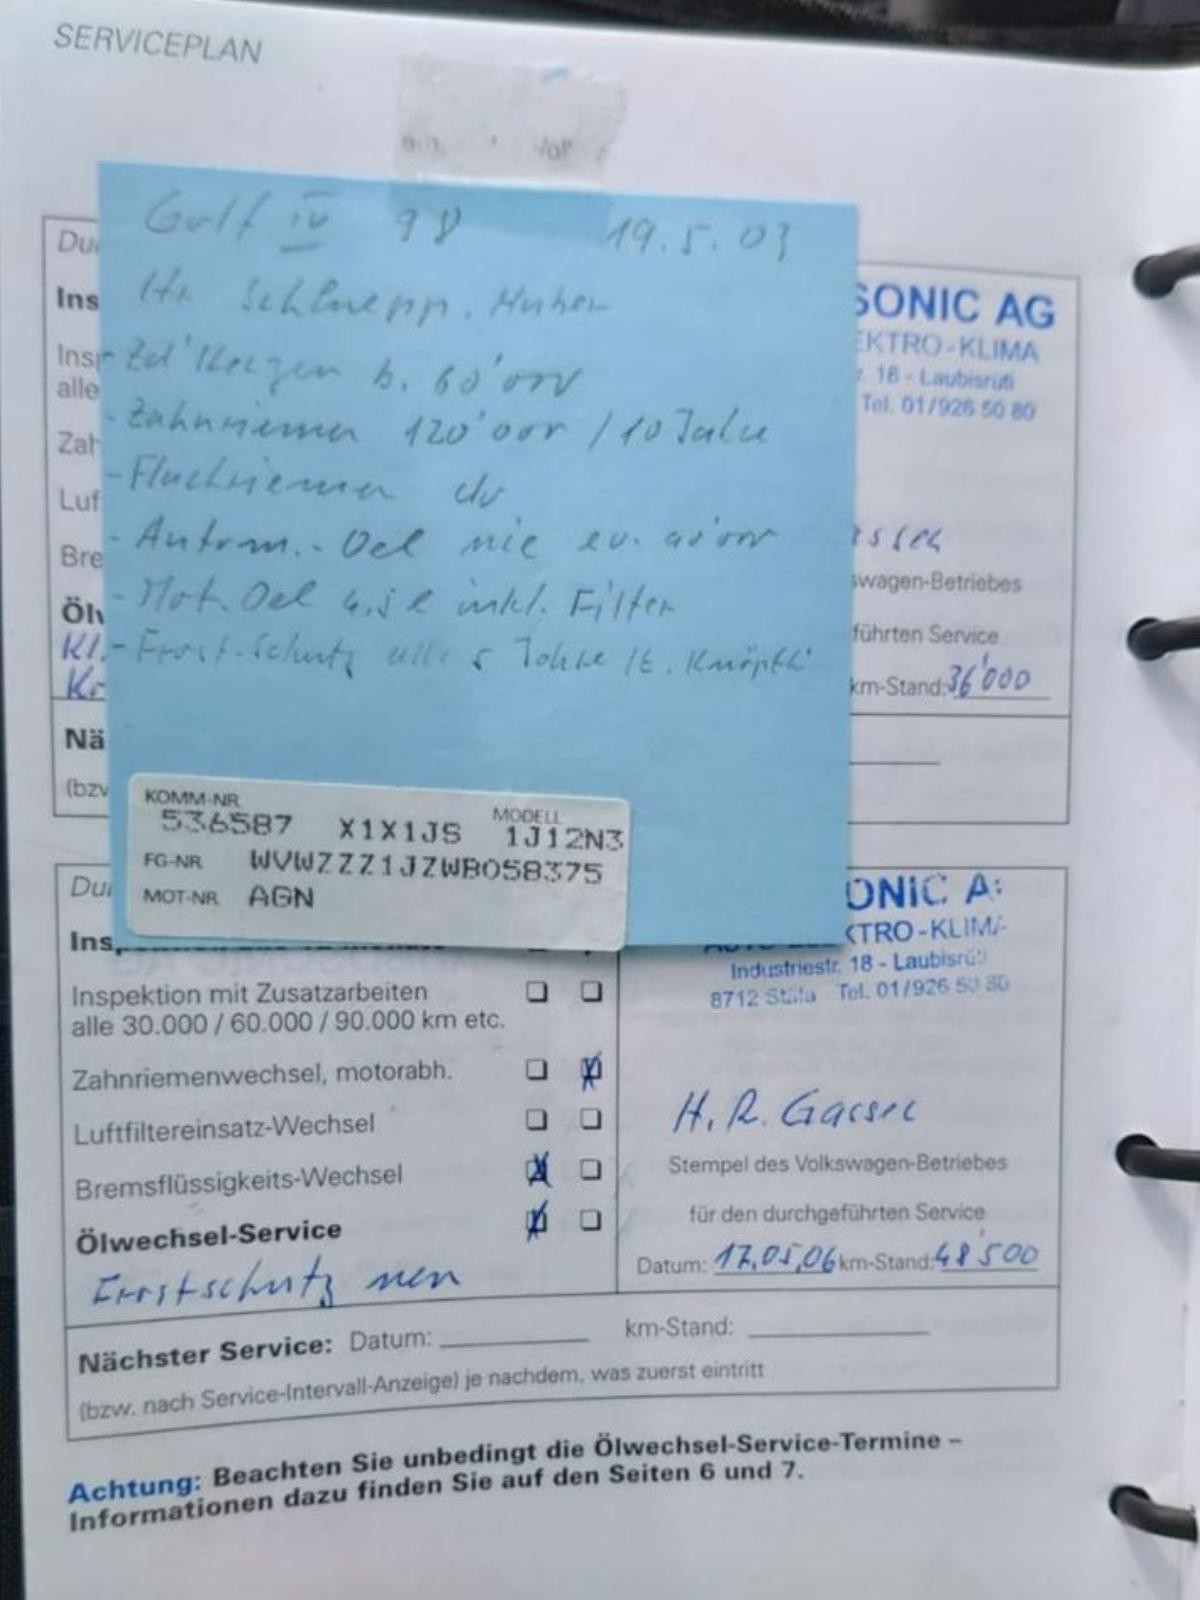 SERVICEPLAN
Golf IV 98 19.5.03
Hr. Schluepp.
- Zd'Kerzen b. 60'000
- Zahnriemen 120'000 / 10 Jahre
- Flachriemen do
- Autom.- Oel nie ev.
- Mot. Oel 4,5 l inkl. Filter
- Frost-Schutz alle 5 Jahre lt. Knöpfli
KOMM-NR MODELL
536587 X1X1JS 1J12N3
FG-NR WVWZZZ1JZWB058375
MOT-NR AGN
Du
Ins
Insp
alle
Zah
Luf
Bre
Öl
Kl.
Kr
Nä
(bzw
SONIC AG
EKTRO-KLIMA
. 18 - Laubisrüti
Tel. 01/926 50 80
swagen-Betriebes
führten Service
km-Stand: 36'000
Du
Ins
Inspektion mit Zusatzarbeiten
alle 30.000 / 60.000 / 90.000 km etc.
Zahnriemenwechsel, motorabh.
Luftfiltereinsatz-Wechsel
Bremsflüssigkeits-Wechsel
Ölwechsel-Service
Frostschutz neu
ONIC A
KTRO-KLIMA
Industriestr. 18 - Laubisrüti
8712 Stäfa Tel. 01/926 50 80
H. R. Gasser
Stempel des Volkswagen-Betriebes
für den durchgeführten Service
Datum: 17.05.06 km-Stand: 48'500
Nächster Service: Datum: km-Stand:
(bzw. nach Service-Intervall-Anzeige) je nachdem, was zuerst eintritt
Achtung: Beachten Sie unbedingt die Ölwechsel-Service-Termine –
Informationen dazu finden Sie auf den Seiten 6 und 7.